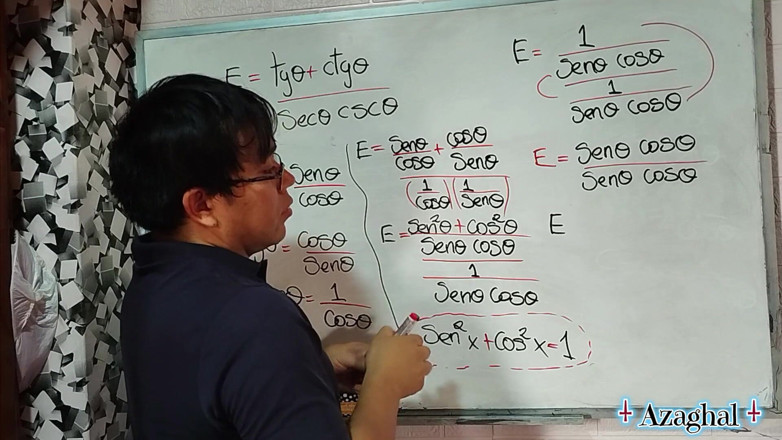 E = tgθ + ctgθ
secθ cscθ
senθ
cosθ
= cosθ
senθ
θ = 1
cosθ
E = senθ + cosθ
cosθ senθ
(1) (1)
cosθ senθ
E = sen²θ + cos²θ
senθ cosθ
1
senθ cosθ
sen²x + cos²x = 1
E = 1
senθ cosθ
1
senθ cosθ
E = senθ cosθ
senθ cosθ
E
Azaghal